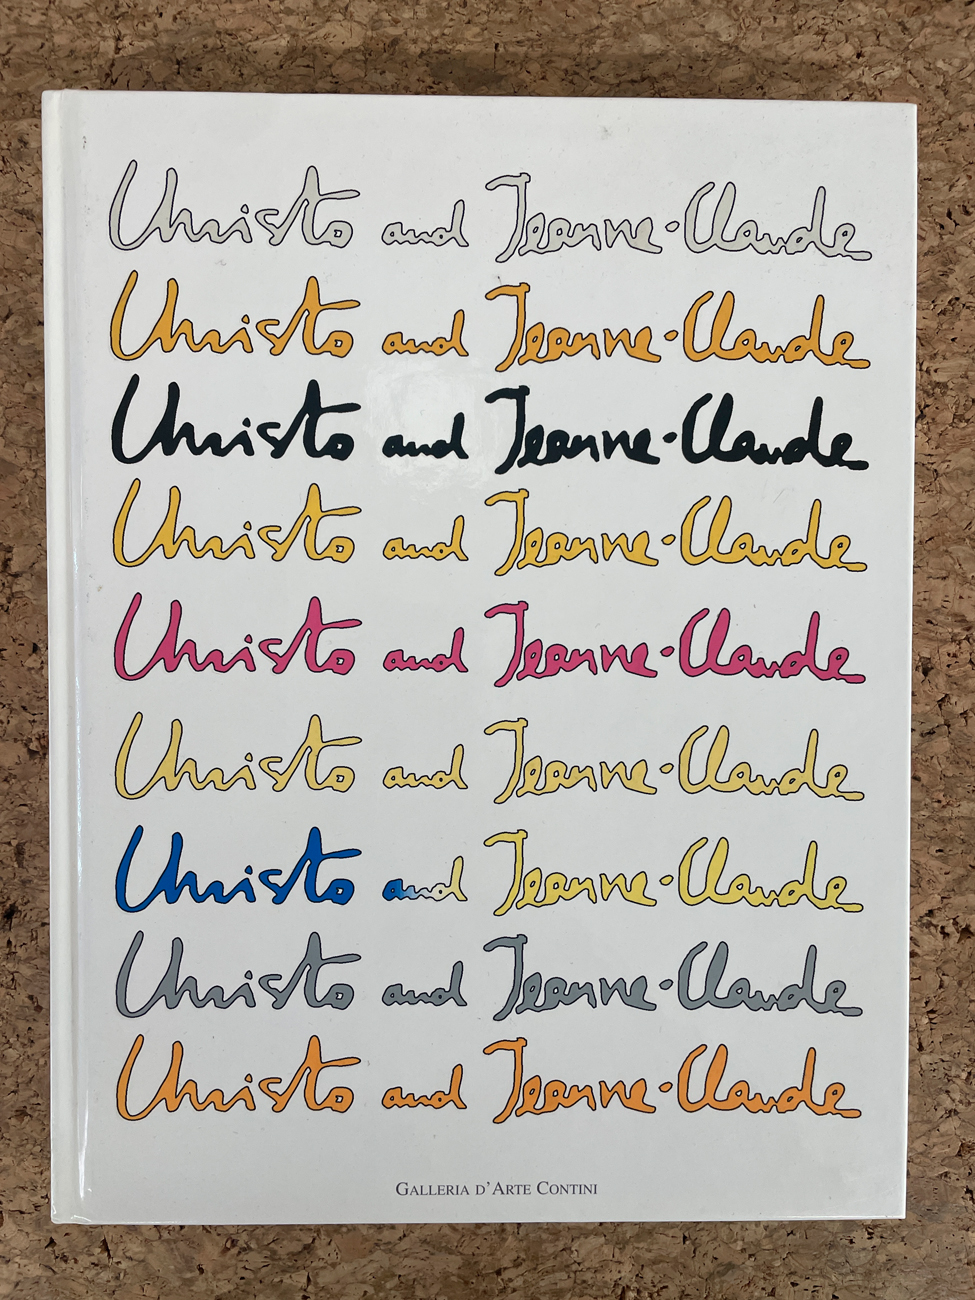 Christo and Jeanne-Claude
Christo and Jeanne-Claude
Christo and Jeanne-Claude
Christo and Jeanne-Claude
Christo and Jeanne-Claude
Christo and Jeanne-Claude
Christo and Jeanne-Claude
Christo and Jeanne-Claude
Christo and Jeanne-Claude
GALLERIA D'ARTE CONTINI